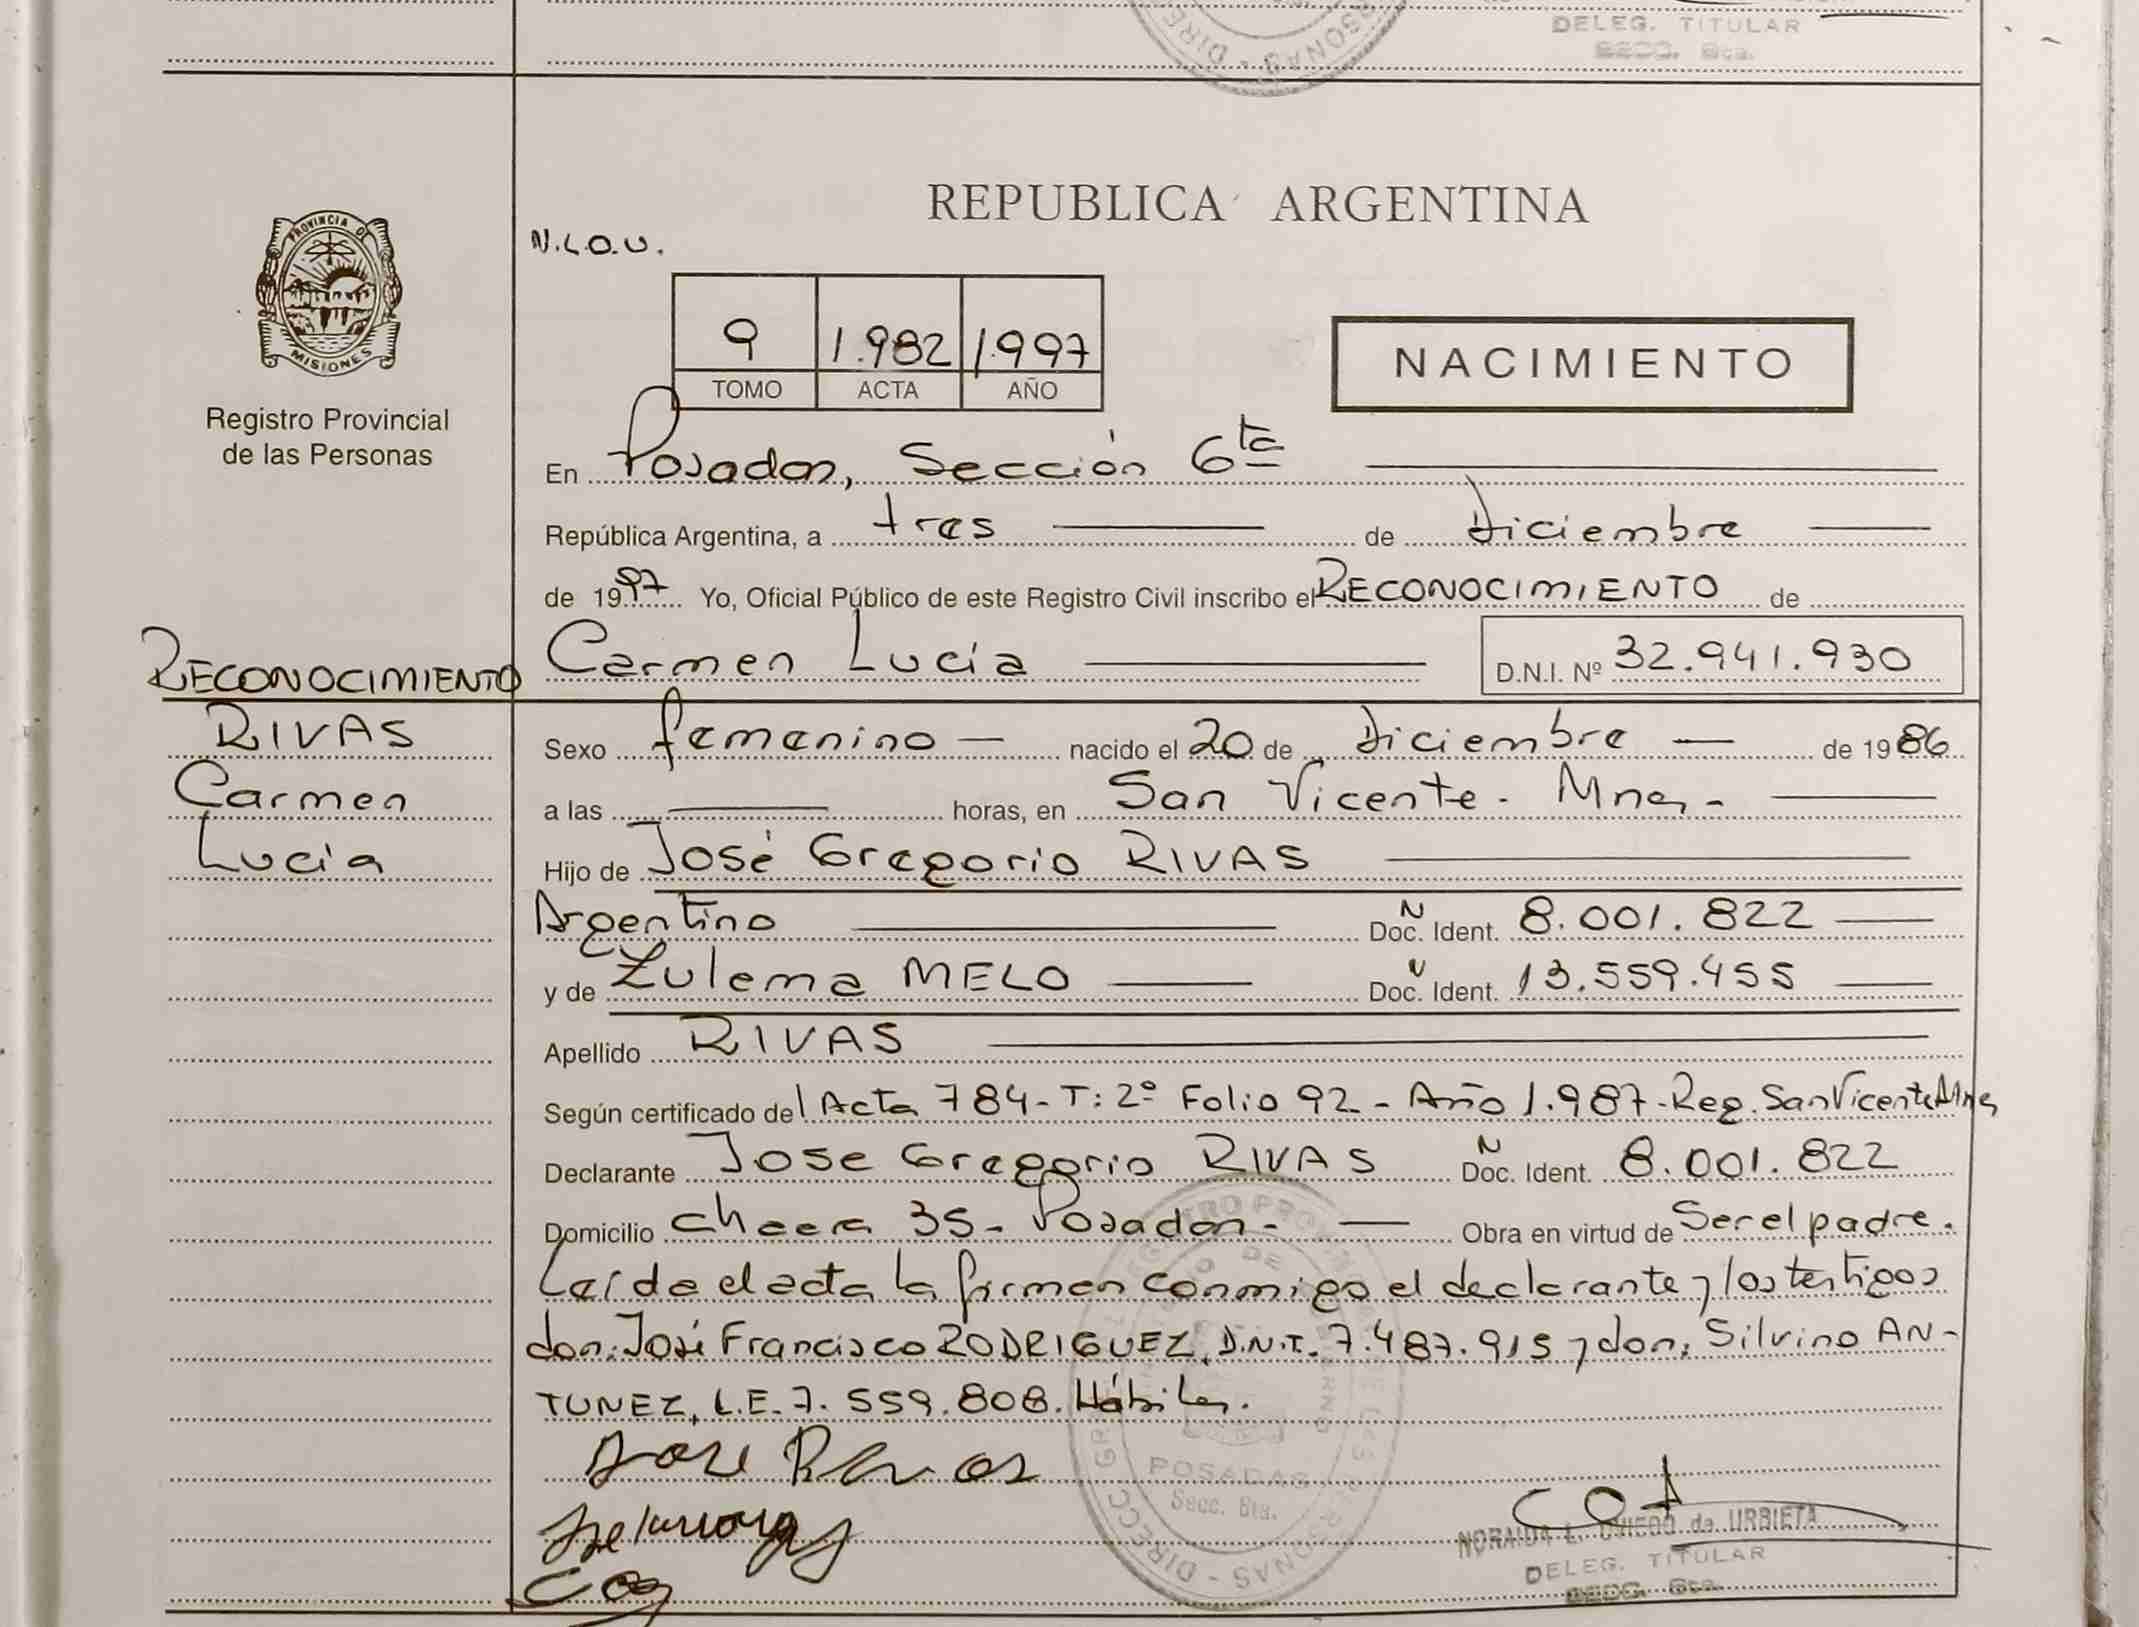 DELEG. TITULAR
SECC. 6ta.
PROVINCIA DE
MISIONES
Registro Provincial
de las Personas
REPUBLICA ARGENTINA
N.L.O.U.
9 1.982 1.997
TOMO ACTA AÑO
NACIMIENTO
En Posadas, Sección 6ta
República Argentina, a tres de Diciembre
de 1997 Yo, Oficial Público de este Registro Civil inscribo el RECONOCIMIENTO de
Carmen Lucía D.N.I. Nº 32.941.930
RECONOCIMIENTO
RIVAS
Carmen
Lucía
Sexo femenino nacido el 20 de Diciembre de 1986
a las horas, en San Vicente. Mnes.
Hijo de José Gregorio RIVAS
Argentino Doc. N Ident. 8.001.822
y de Zulema MELO Doc. Ident. 13.559.455
Apellido RIVAS
Según certificado del Acta 784- T: 2º Folio 92 - Año 1.987. Reg. San Vicente Mnes
Declarante Jose Gregorio RIVAS Doc. N Ident. 8.001.822
Domicilio chacra 35- Posadas- Obra en virtud de Ser el padre.
Leída el acta la firman conmigo el declarante y los testigos
don: José Francisco RODRIGUEZ, D.N.I. 7.487.915 y don: Silvino AN-
TUNEZ, L.E. 7.559.808. Hábiles.
Jose Rivas
POSADAS
Secc. 6ta.
NORAIDA L. OVIEDO de URBIETA
DELEG. TITULAR
SECC. 6ta.